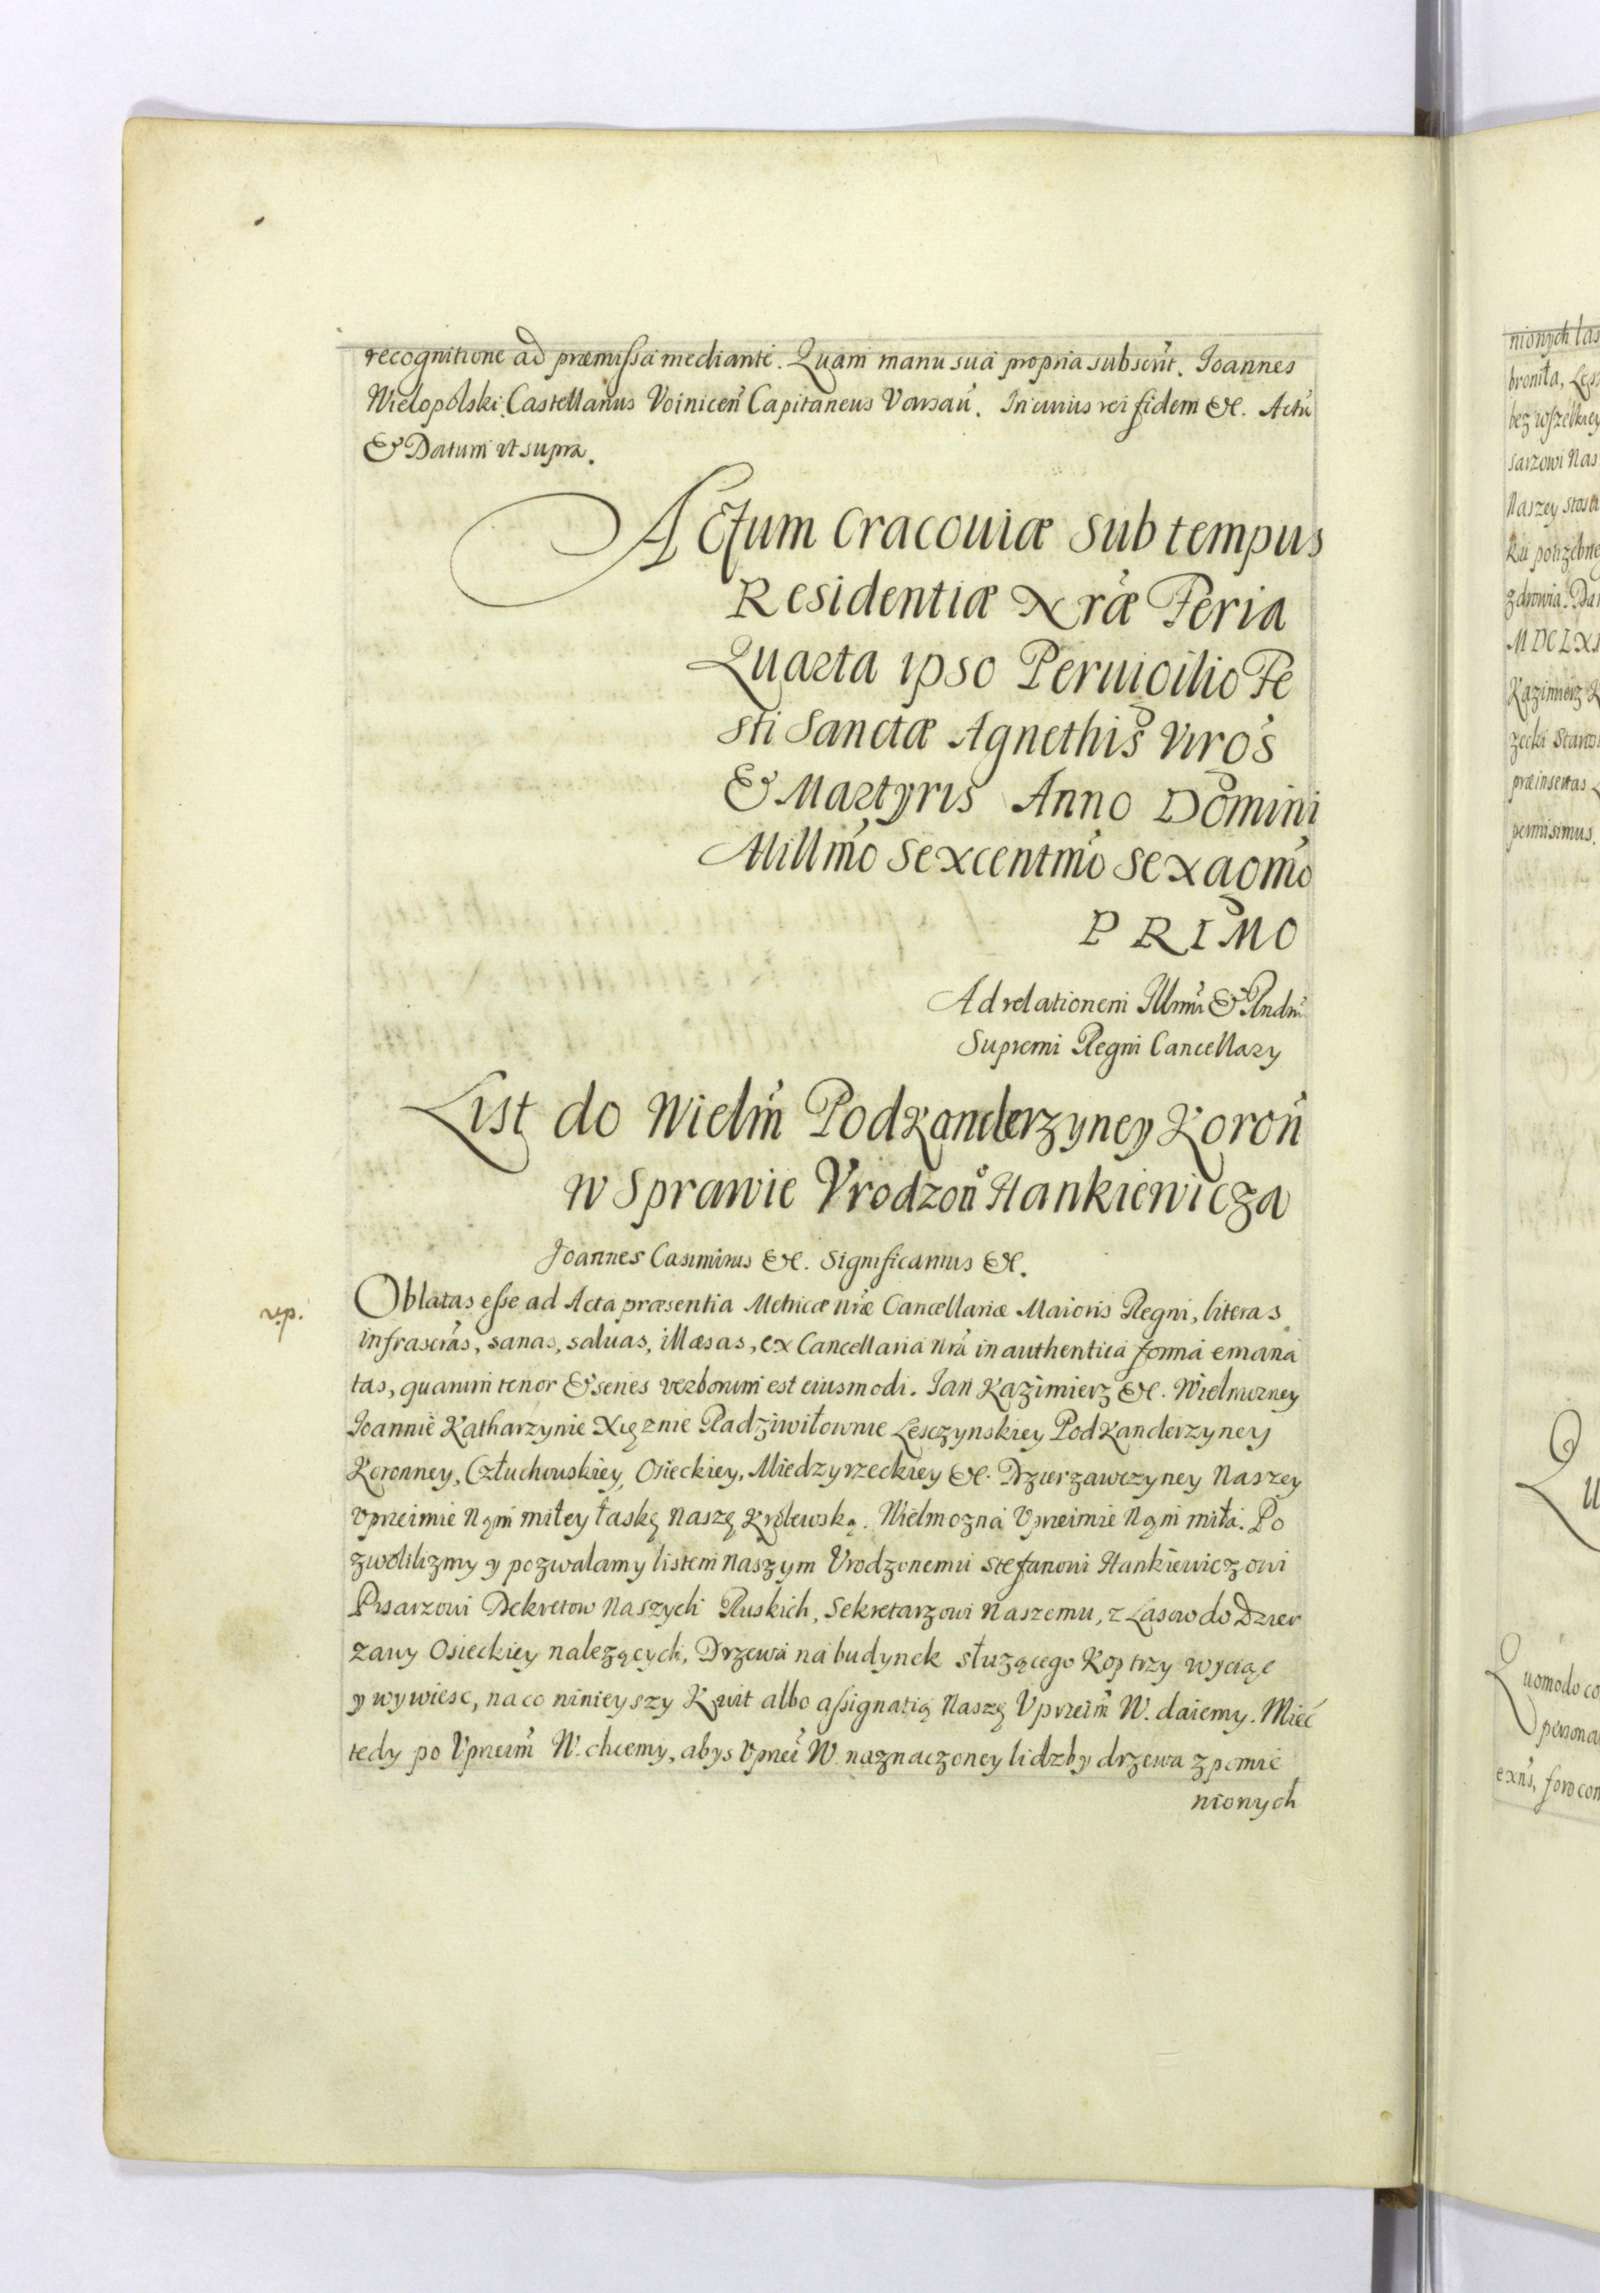 recognitione ad præmissa mediante. Quam manu sua propria subscrit. Joannes
Wielopolski Castellanus Voiniceñ Capitaneus Varsaũ. In cuius rei fidem &c. Actũ
& Datum ut supra.
Actum Cracouiæ Sub tempus
Residentiæ Nræ Feria
Quarta ipso Peruigilio Fe
sti Sanctæ Agnethis Viros
& Martyris Anno Domini
Millmo Sexcentmo Sexagmo
PRIMO
Ad relationem Illmi & Rndmi
Supremi Regni Cancellary
List do Wielm Podkanclerzyney Koroñ
w Sprawie Vrodzoño Hankiewicza
Joannes Casimirus &c. Significamus &c.
rep.
Oblatas esse ad Acta præsentia Metricæ nræ Cancellariæ Maioris Regni, literas
infrascras, sanas, saluas, illæsas, ex Cancellaria nra in authentica forma emana
tas, quarum tenor & series verborum est eiusmodi. Jan Kazimierz &c. Wielmozney
Joannie Katharzynie Xięznie Radziwiłownie Lesczynskiey Podkanclerzyney
Koronney, Człuchowskiey, Osieckiey, Miedzyrzeckiey &c. Dzierzawczyney Naszey
Vprzeimie Nąm miłey łaskę Naszę Krolewską. Wielmozna Vprzeimie Nąm miła. Po
zwolilizmy y pozwalamy listem Naszym Vrodzonemu Stefanowi Hankiewiczowi
Pisarzowi Dekretow Naszych Ruskich, Sekretarzowi Naszemu, z Lasow do Dzier
zawy Osieckiey nalezących, Drzewa na budynek słuzącego Kop trzy wyciąc
y wywiesc, na co ninieyszy Kwit albo assignatią Naszę Vprzeim W. daiemy. Mieć
tedy po Vprzeim W. chcemy, abys Vprzei W. naznaczoney lidzby drzewa z pomie
nionych
nionych las
broniła, Lecz
bez wszelkiey
sarzowi Nas
Naszey
potrzebne
zdrowia. Dan
Kazimierz K
præinsertas
permisimus.
Qu
Quomodo co
persona
exns, foro con